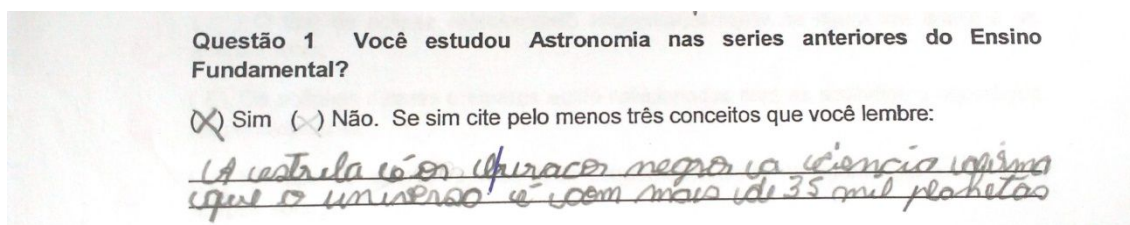 Questão 1 Você estudou Astronomia nas series anteriores do Ensino
Fundamental?
(X) Sim (X) Não. Se sim cite pelo menos três conceitos que você lembre:
A estrela buraco negro a ciencia afirma
que o universo é com mais de 35 mil planetas